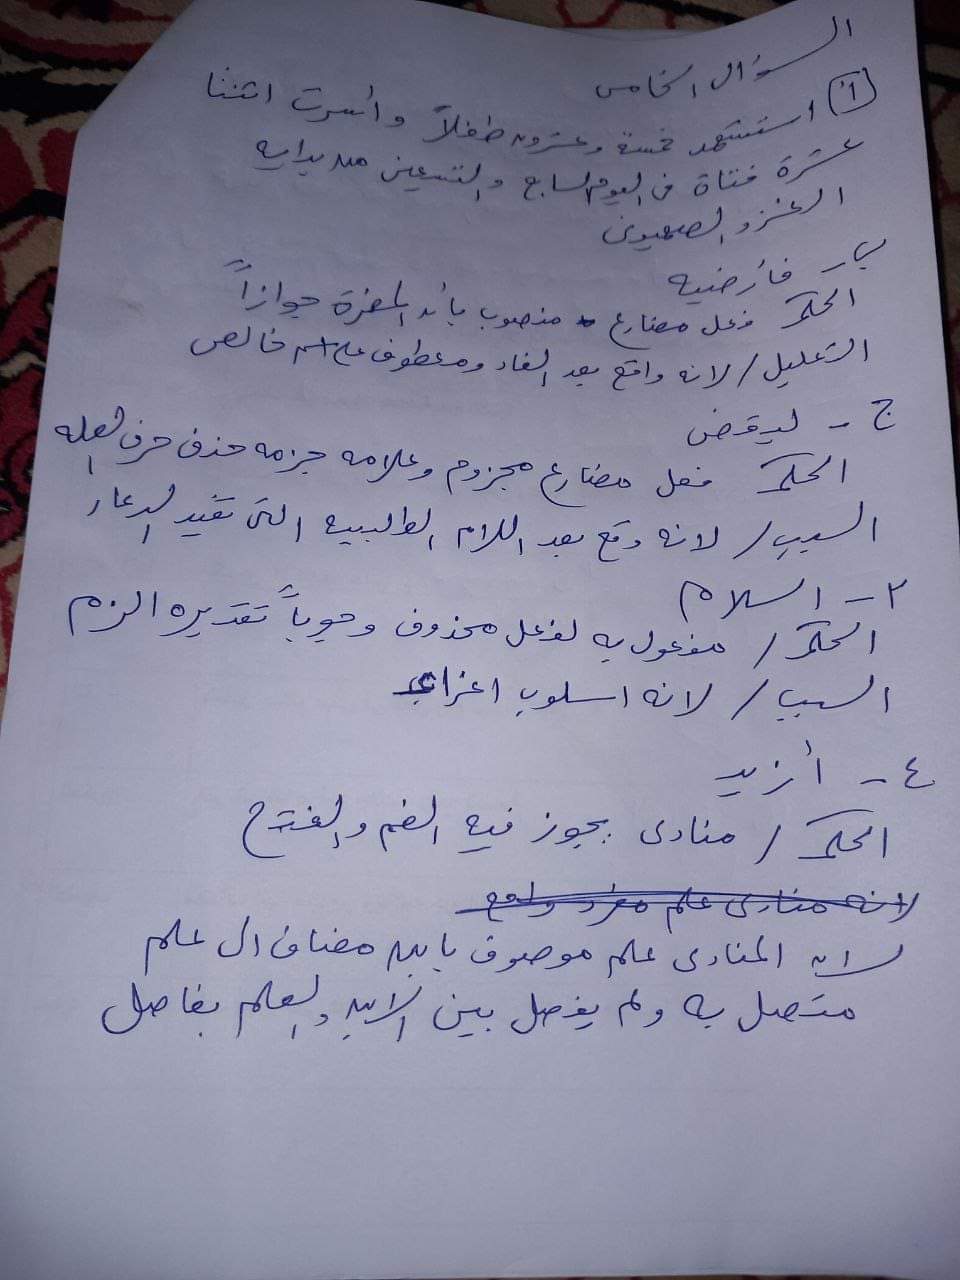 السؤال الخامس
أ) استشهد خمسة وعشرون طفلاً وأُسرت اثنتا
عشرة فتاة في اليوم السابع والتسعين من بداية
الغزو الصهيوني
ب - فأرضيه
الحكم فعل مضارع منصوب بأن المضمرة جوازاً
التعليل / لانه واقع بعد الفاء ومعطوف على اسم خالص
ج - ليقض
الحكم فعل مضارع مجزوم وعلامه جزمه حذف حرف العله
السبب / لانه وقع بعد اللام الطلبيه التي تفيد الدعاء
٢ - السلام
الحكم / مفعول به لفعل محذوف وجوباً تقديره الزم
السبب / لانه اسلوب اغراء
٤ - أزيد
الحكم / منادى يجوز فيه الضم والفتح
لانه منادى علم مفرد
لان المنادى علم موصوف بابن مضاف ال علم
متصل به ولم يفصل بين الابن والعلم بفاصل